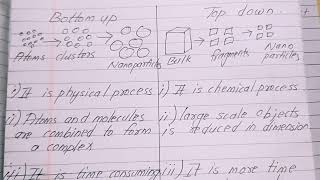 Bottom up
Top down...
Atoms clusters Nanoparticles
Bulk fragments Nano particles
i) It is physical process
i) It is chemical process
ii) Atoms and molecules are combined to form a complex
ii) large scale objects is reduced in dimension
iii) It is time consuming
iii) It is more time